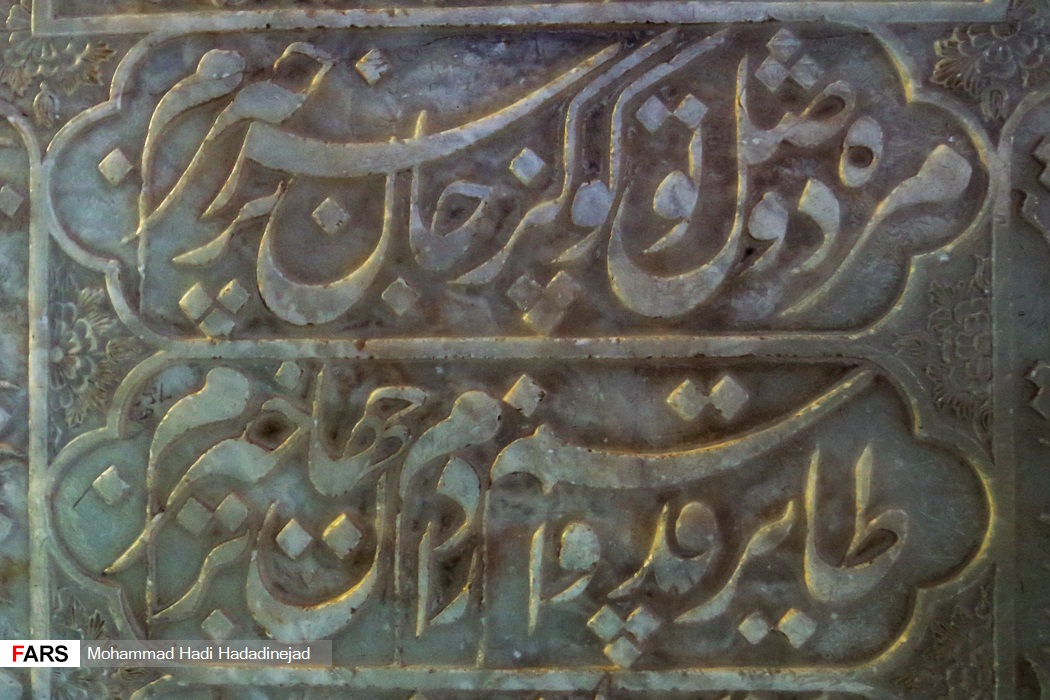 مژده وصل تو کو کز سر جان برخیزم
طایر قدسم و از دام جهان برخیزم
FARS Mohammad Hadi Hadadinejad